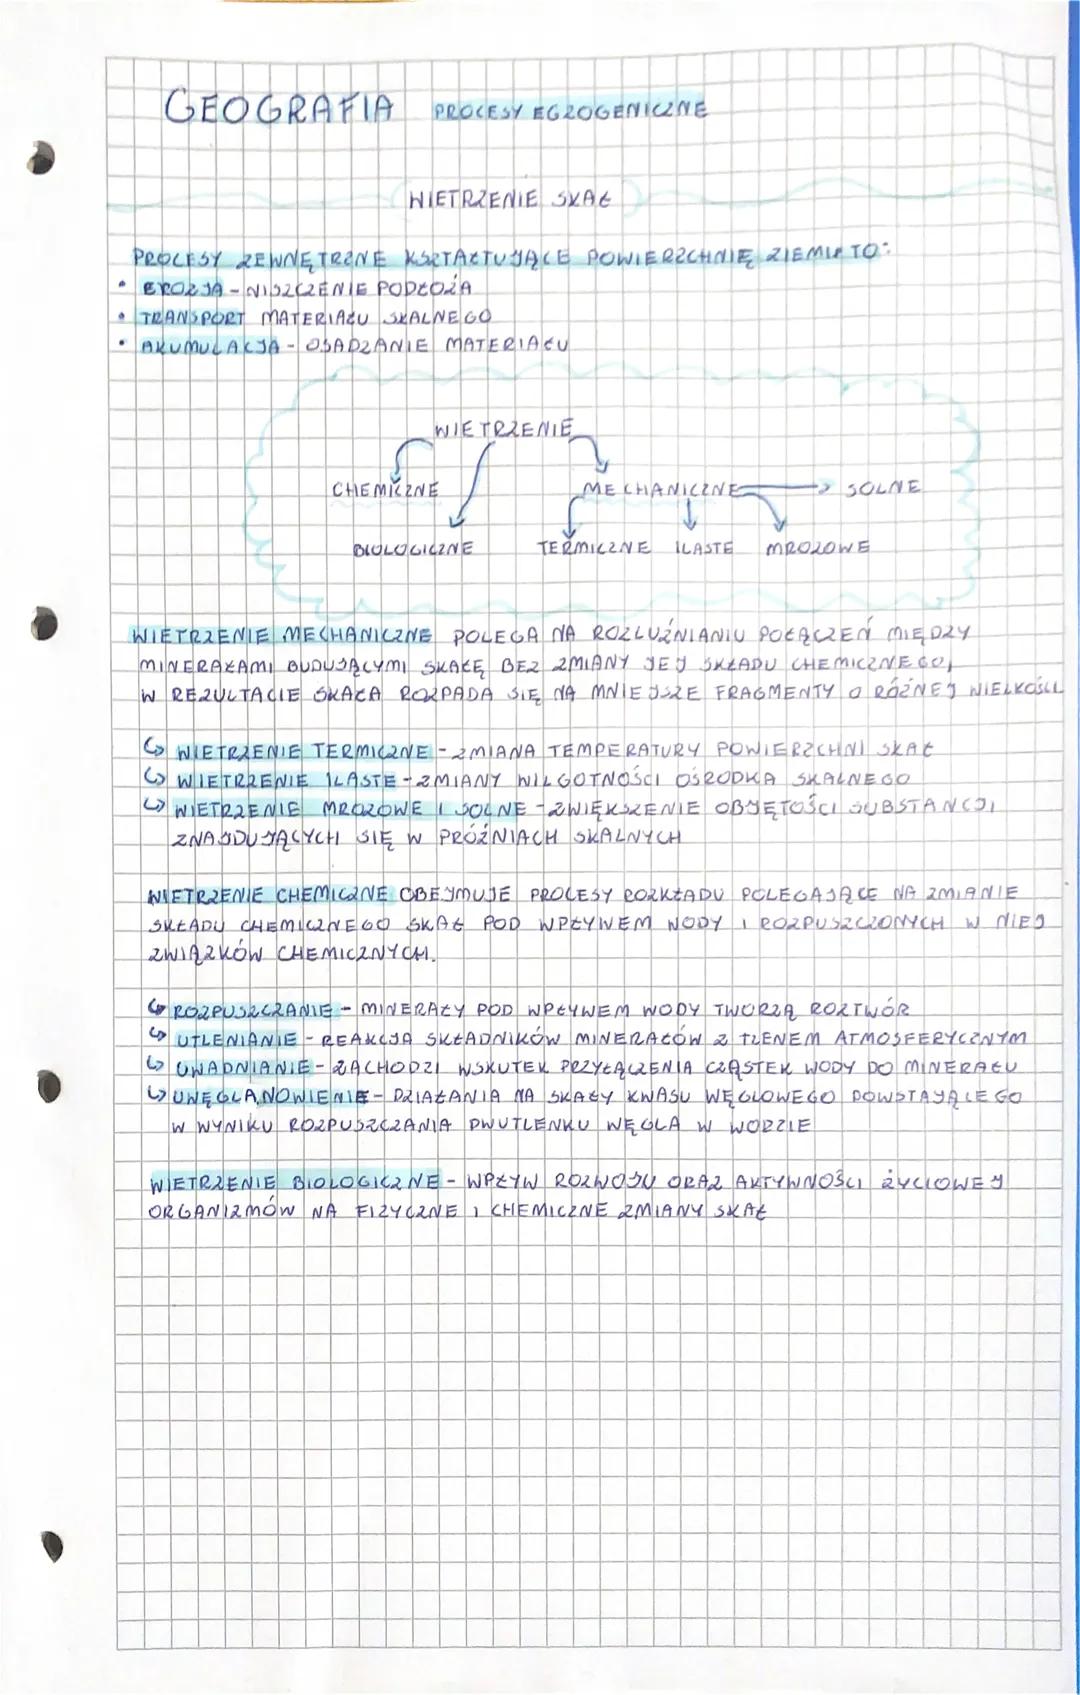 GEOGRAFIA PROCESY EGZOGENICZNE
WIETRZENIE SKAŁ
PROCESY ZEWNĘTRZNE KSZTAŁTUJĄCE POWIERZCHNIĘ ZIEMI TO:
• EROZJA - NISZCZENIE PODŁOŻA
• TRANSPORT MATERIAŁU SKALNEGO
• AKUMULACJA - OSADZANIE MATERIAŁU
WIETRZENIE
CHEMICZNE MECHANICZNE → SOLNE
BIOLOGICZNE TERMICZNE ILASTE MROZOWE
WIETRZENIE MECHANICZNE POLEGA NA ROZLUŹNIANIU POŁĄCZEŃ MIĘDZY
MINERAŁAMI BUDUJĄCYMI SKAŁĘ BEZ ZMIANY JEJ SKŁADU CHEMICZNEGO,
W REZULTACIE SKAŁA ROZPADA SIĘ NA MNIEJSZE FRAGMENTY O RÓŻNEJ WIELKOŚCI
↳ WIETRZENIE TERMICZNE - ZMIANA TEMPERATURY POWIERZCHNI SKAŁ
↳ WIETRZENIE ILASTE - ZMIANY WILGOTNOŚCI OŚRODKA SKALNEGO
↳ WIETRZENIE MROZOWE I SOLNE - ZWIĘKSZENIE OBJĘTOŚCI SUBSTANCJI
ZNAJDUJĄCYCH SIĘ W PRÓŻNIACH SKALNYCH
WIETRZENIE CHEMICZNE OBEJMUJE PROCESY ROZKŁADU POLEGAJĄCE NA ZMIANIE
SKŁADU CHEMICZNEGO SKAŁ POD WPŁYWEM WODY I ROZPUSZCZONYCH W NIEJ
ZWIĄZKÓW CHEMICZNYCH.
↳ ROZPUSZCZANIE - MINERAŁY POD WPŁYWEM WODY TWORZĄ ROZTWÓR
↳ UTLENIANIE - REAKCJA SKŁADNIKÓW MINERAŁÓW Z TLENEM ATMOSFERYCZNYM
↳ UWADNIANIE - ZACHODZI WSKUTEK PRZYŁĄCZENIA CZĄSTEK WODY DO MINERAŁU
↳ UWĘGLANOWIENIE - DZIAŁANIA NA SKAŁY KWASU WĘGLOWEGO POWSTAJĄCEGO
W WYNIKU ROZPUSZCZANIA DWUTLENKU WĘGLA W WODZIE
WIETRZENIE BIOLOGICZNE - WPŁYW ROZWOJU ORAZ AKTYWNOŚCI ŻYCIOWEJ
ORGANIZMÓW NA FIZYCZNE I CHEMICZNE ZMIANY SKAŁ